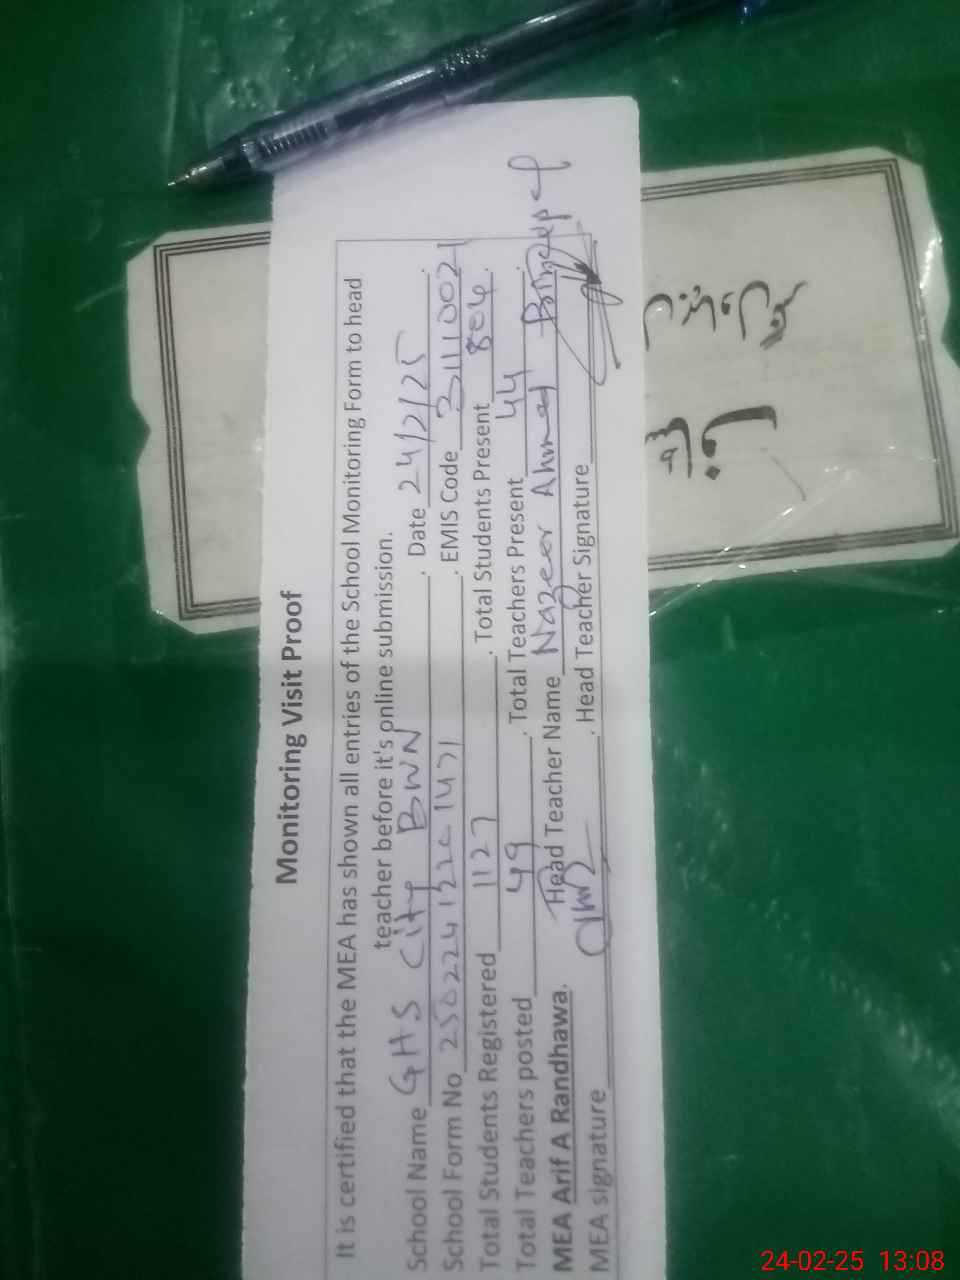 Monitoring Visit Proof
It is certified that the MEA has shown all entries of the School Monitoring Form to head
teacher before it's online submission.
School Name GHS City BWN. Date 24/2/25.
School Form No 25022412201471. EMIS Code 31110021
Total Students Registered 1127. Total Students Present 804.
Total Teachers posted 49. Total Teachers Present 44.
MEA Arif A Randhawa. Head Teacher Name Nazeer Ahmed
MEA signature. Head Teacher Signature
24-02-25 13:08